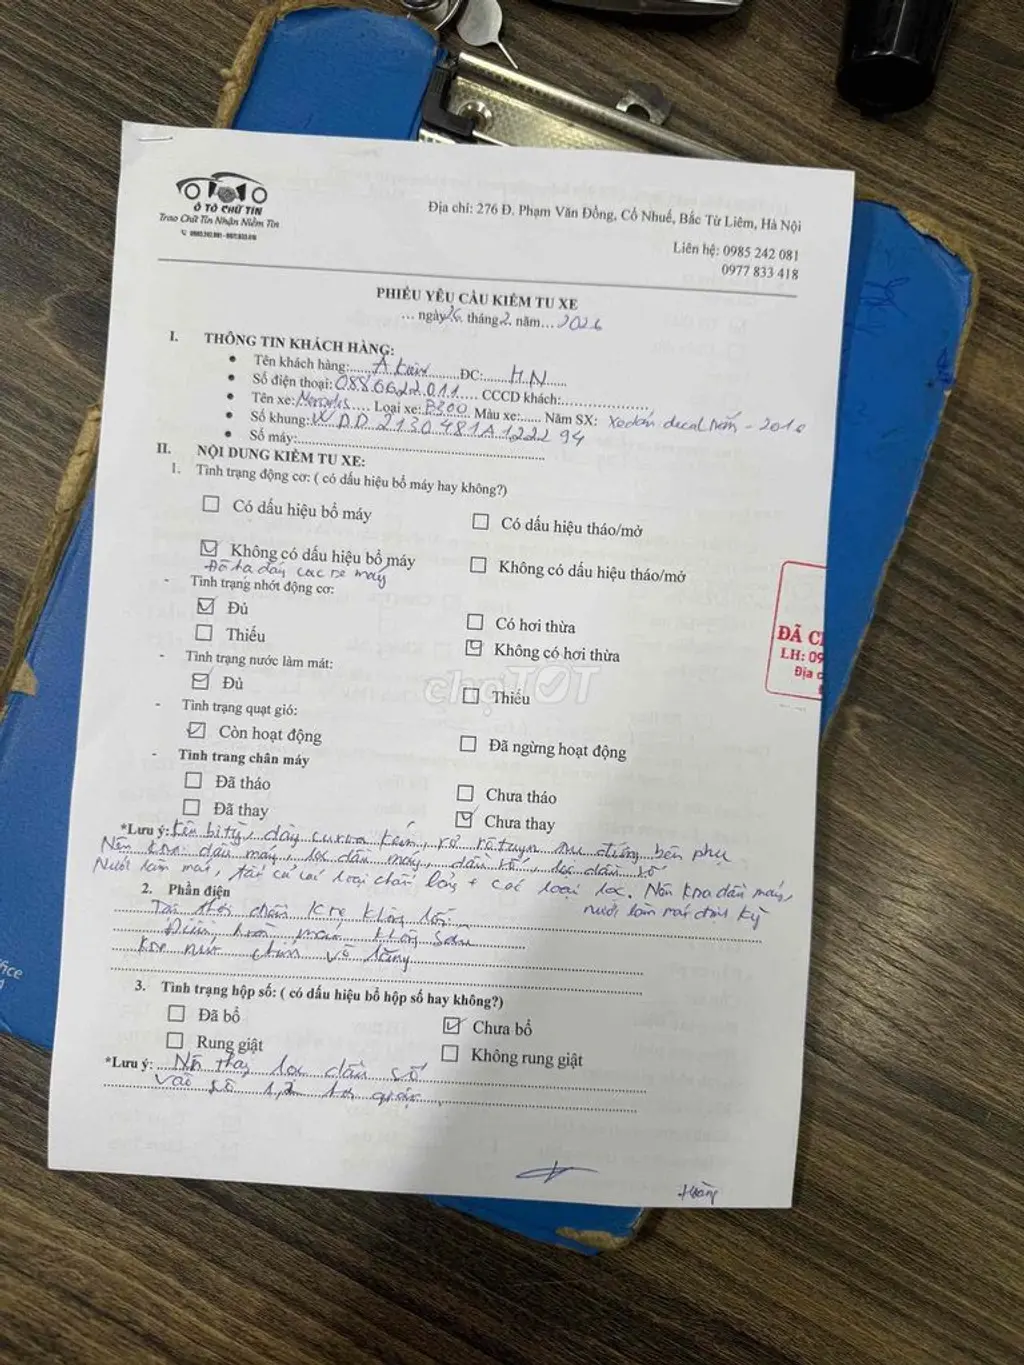 Ô TÔ CHỮ TÍN
Trao Chữ Tín Nhận Niềm Tin
0985.242.081 - 0977.833.418
Địa chỉ: 276 Đ. Phạm Văn Đồng, Cổ Nhuế, Bắc Từ Liêm, Hà Nội
Liên hệ: 0985 242 081
0977 833 418
PHIẾU YÊU CẦU KIỂM TU XE
... ngày 26 tháng 2 năm... 2026
I. THÔNG TIN KHÁCH HÀNG:
Tên khách hàng: A ĐC: HN
Số điện thoại: 0886622011 CCCD khách:
Tên xe: Mercedes Loại xe: Màu xe: Năm SX: decal
Số khung: WDD2130481A122294
Số máy:
II. NỘI DUNG KIỂM TU XE:
1. Tình trạng động cơ: ( có dấu hiệu bổ máy hay không?)
Có dấu hiệu bổ máy
Có dấu hiệu tháo/mở
Không có dấu hiệu bổ máy
Không có dấu hiệu tháo/mở
máy
- Tình trạng nhớt động cơ:
Đủ
Có hơi thừa
Thiếu
Không có hơi thừa
- Tình trạng nước làm mát:
Đủ
Thiếu
chợTỐT
- Tình trạng quạt gió:
Còn hoạt động
Đã ngừng hoạt động
- Tình trang chân máy
Đã tháo
Chưa tháo
Đã thay
Chưa thay
*Lưu ý: dây curoa kém, bên phụ
Nên dầu máy, lọc dầu máy, dầu số, lọc dầu số
Nước làm mát, tất cả các loại + các loại lọc. Nên dầu máy,
nước làm mát định kỳ
2. Phần điện
không
không
3. Tình trạng hộp số: ( có dấu hiệu bổ hộp số hay không?)
Đã bổ
Chưa bổ
Rung giật
Không rung giật
*Lưu ý: Nên thay lọc dầu số
Vào số
ĐÃ
LH: 09
Địa c
Hoàng